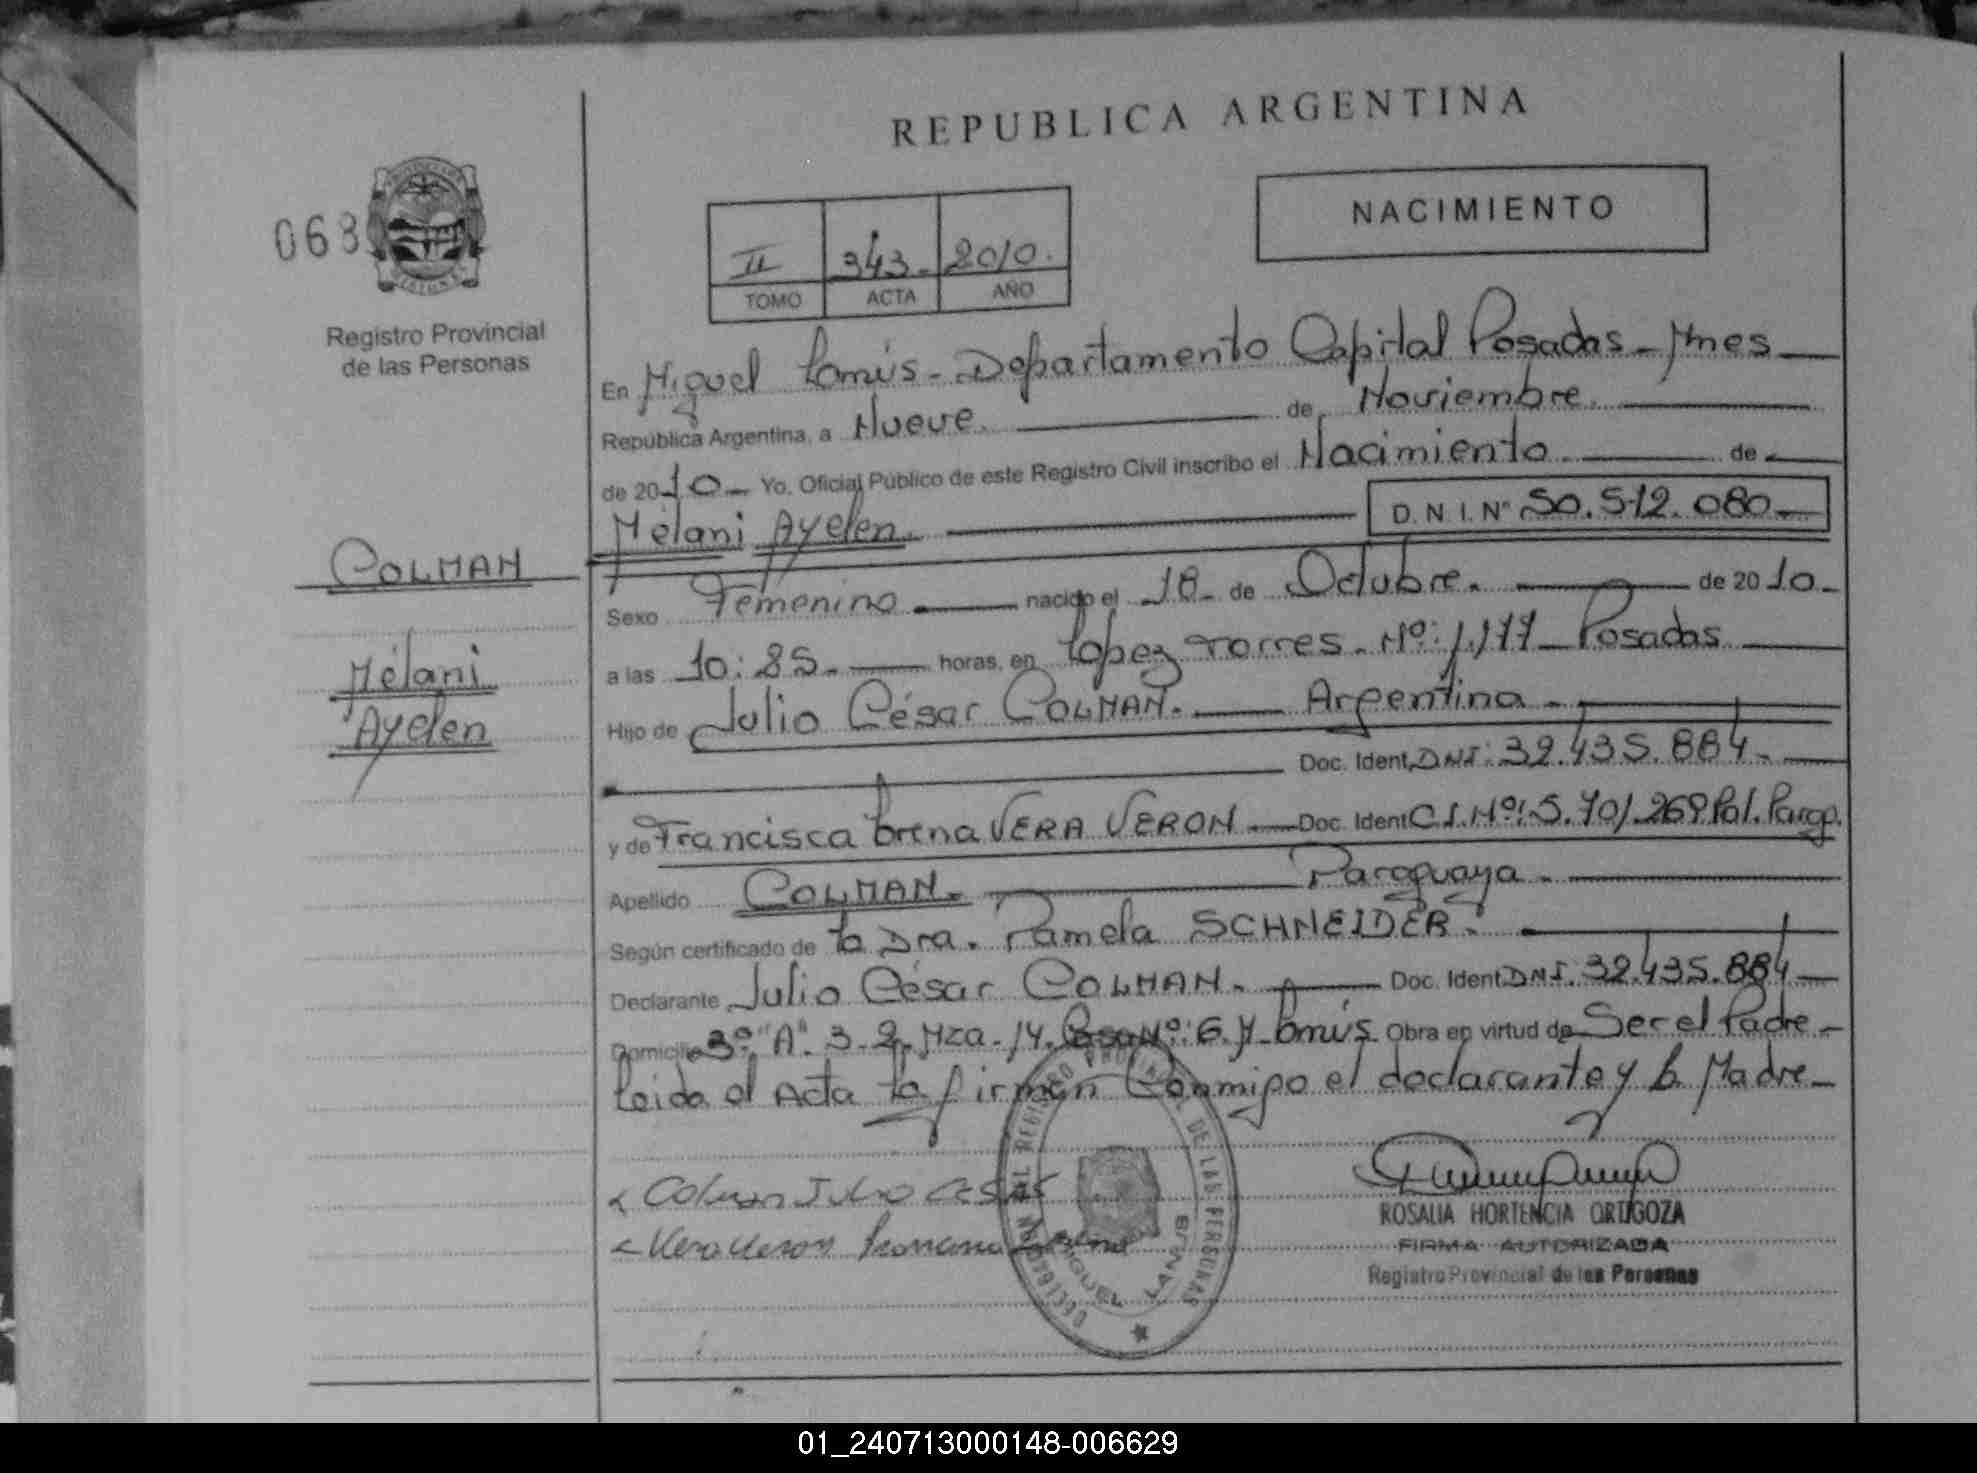 REPUBLICA ARGENTINA
NACIMIENTO
068
II 343- 2010.
TOMO ACTA AÑO
Registro Provincial
de las Personas
En Miguel Lanús - Departamento Capital Posadas - Mnes
República Argentina, a Nueve. de Noviembre.
de 2010- Yo, Oficial Público de este Registro Civil inscribo el Nacimiento de
Mélani Ayelen. D.N.I.Nº 50.512.080-
COLMAN
Mélani
Ayelen
Sexo Femenino nacido el 18- de Octubre. de 2010-
a las 10:25. horas, en López Torres. Nº: 1.177- Posadas
Hijo de Julio César COLMAN. Argentina.
Doc. Ident. DNI: 32.435.884.
y de Francisca Lorena VERA VERON Doc. Ident C.I. Nº: 5.701.269 Pol. Parag.
Apellido COLMAN. Paraguaya.
Según certificado de la Dra. Pamela SCHNEIDER.
Declarante Julio César COLMAN. Doc. Ident DNI. 32.435.884
Domicilio 3º "A". 3-2. Mza. 14. Casa Nº: 6. M. Lanús Obra en virtud de Ser el Padre-
Leida el Acta la firman Conmigo el declarante y la Madre-
Colman Julio Cesar
Vera Veron
DELEGACION DEL REGISTRO PROVINCIAL DE LAS PERSONAS
MIGUEL LANUS
ROSALIA HORTENCIA ORTIGOZA
FIRMA AUTORIZADA
Registro Provincial de las Personas
01_240713000148-006629